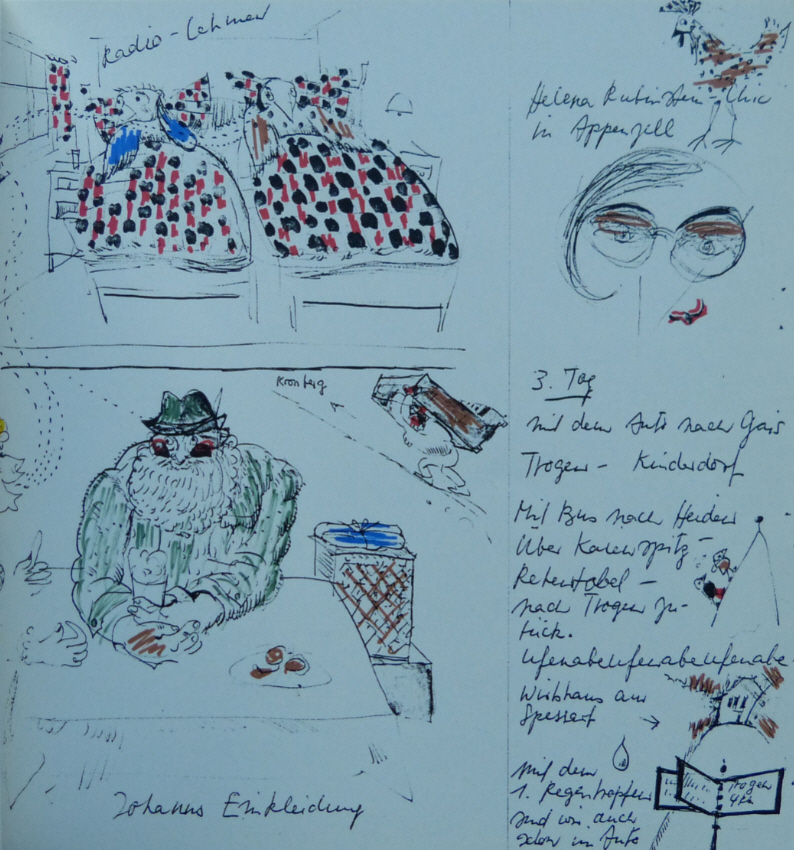 Radio-Lehmer
Kronberg
Johanns Einkleidung
Helena Rubinstein-Chic
in Appenzell
3. Tag
mit dem Auto nach Gais
Trogen - Kinderdorf
Mit Bus nach Heiden
Über Kaienspitz -
Rehetobel -
nach Trogen zu-
rück.
Wirtshaus am
Spessart
Mit dem
1. Regentropfen
sind wir auch
schon im Auto
Trogen
4 km